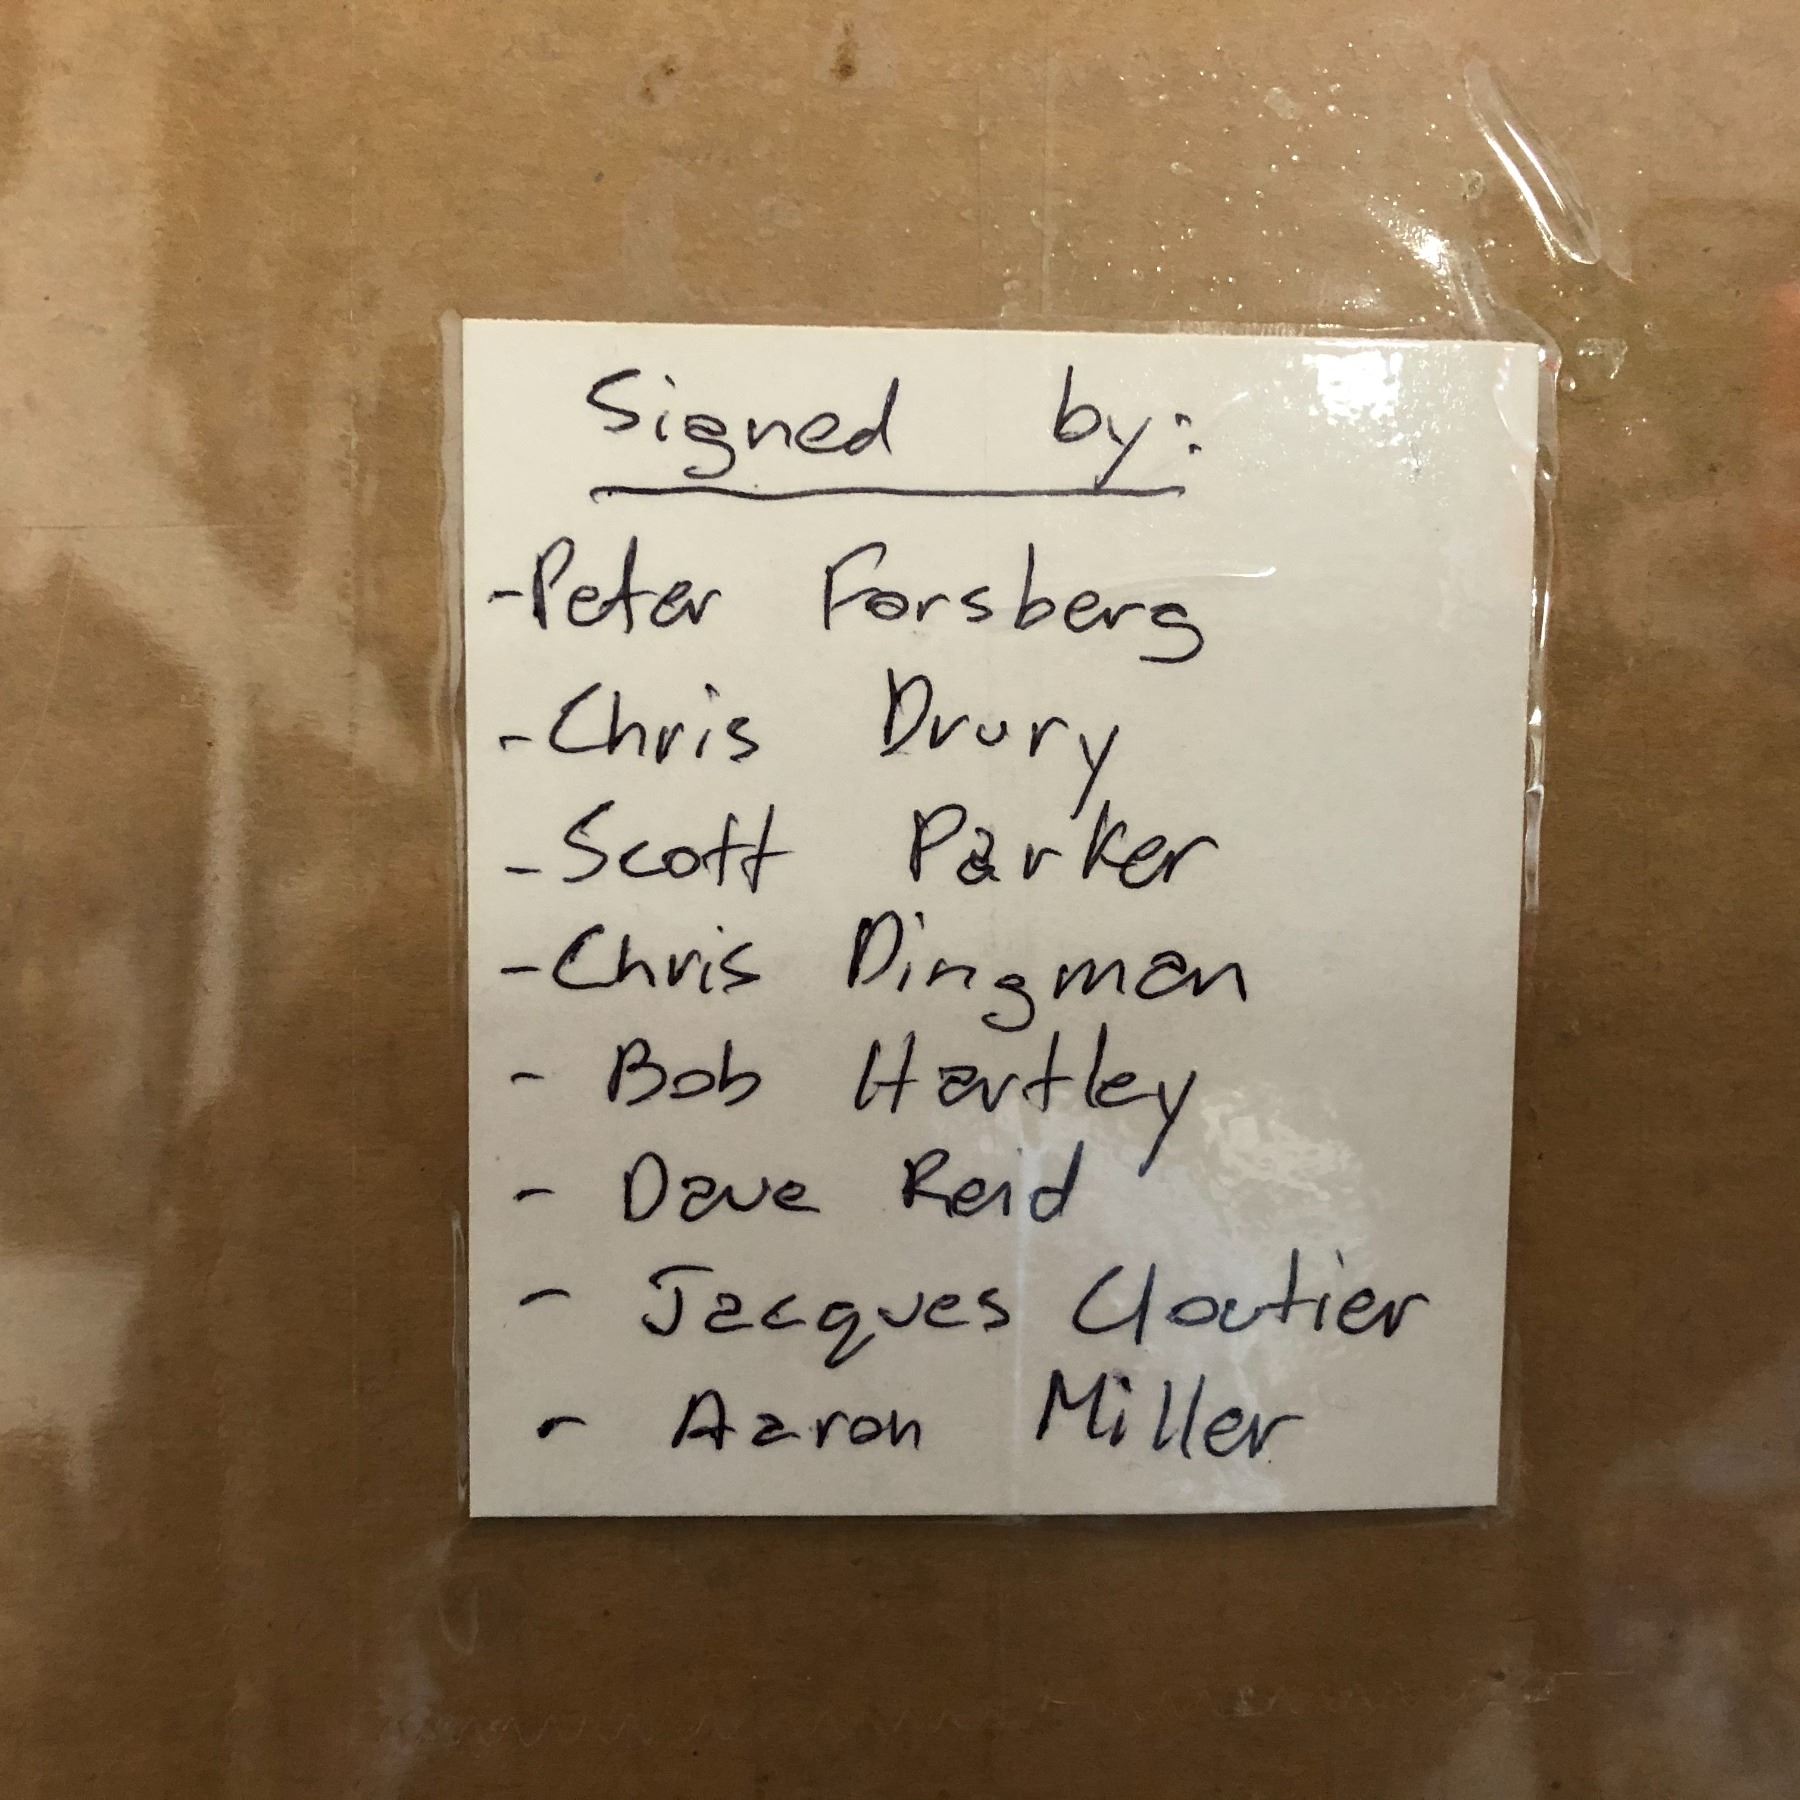 Signed by:
-Peter Forsberg
-Chris Drury
-Scott Parker
-Chris Dingman
- Bob Hartley
- Dave Reid
- Jacques Cloutier
- Aaron Miller